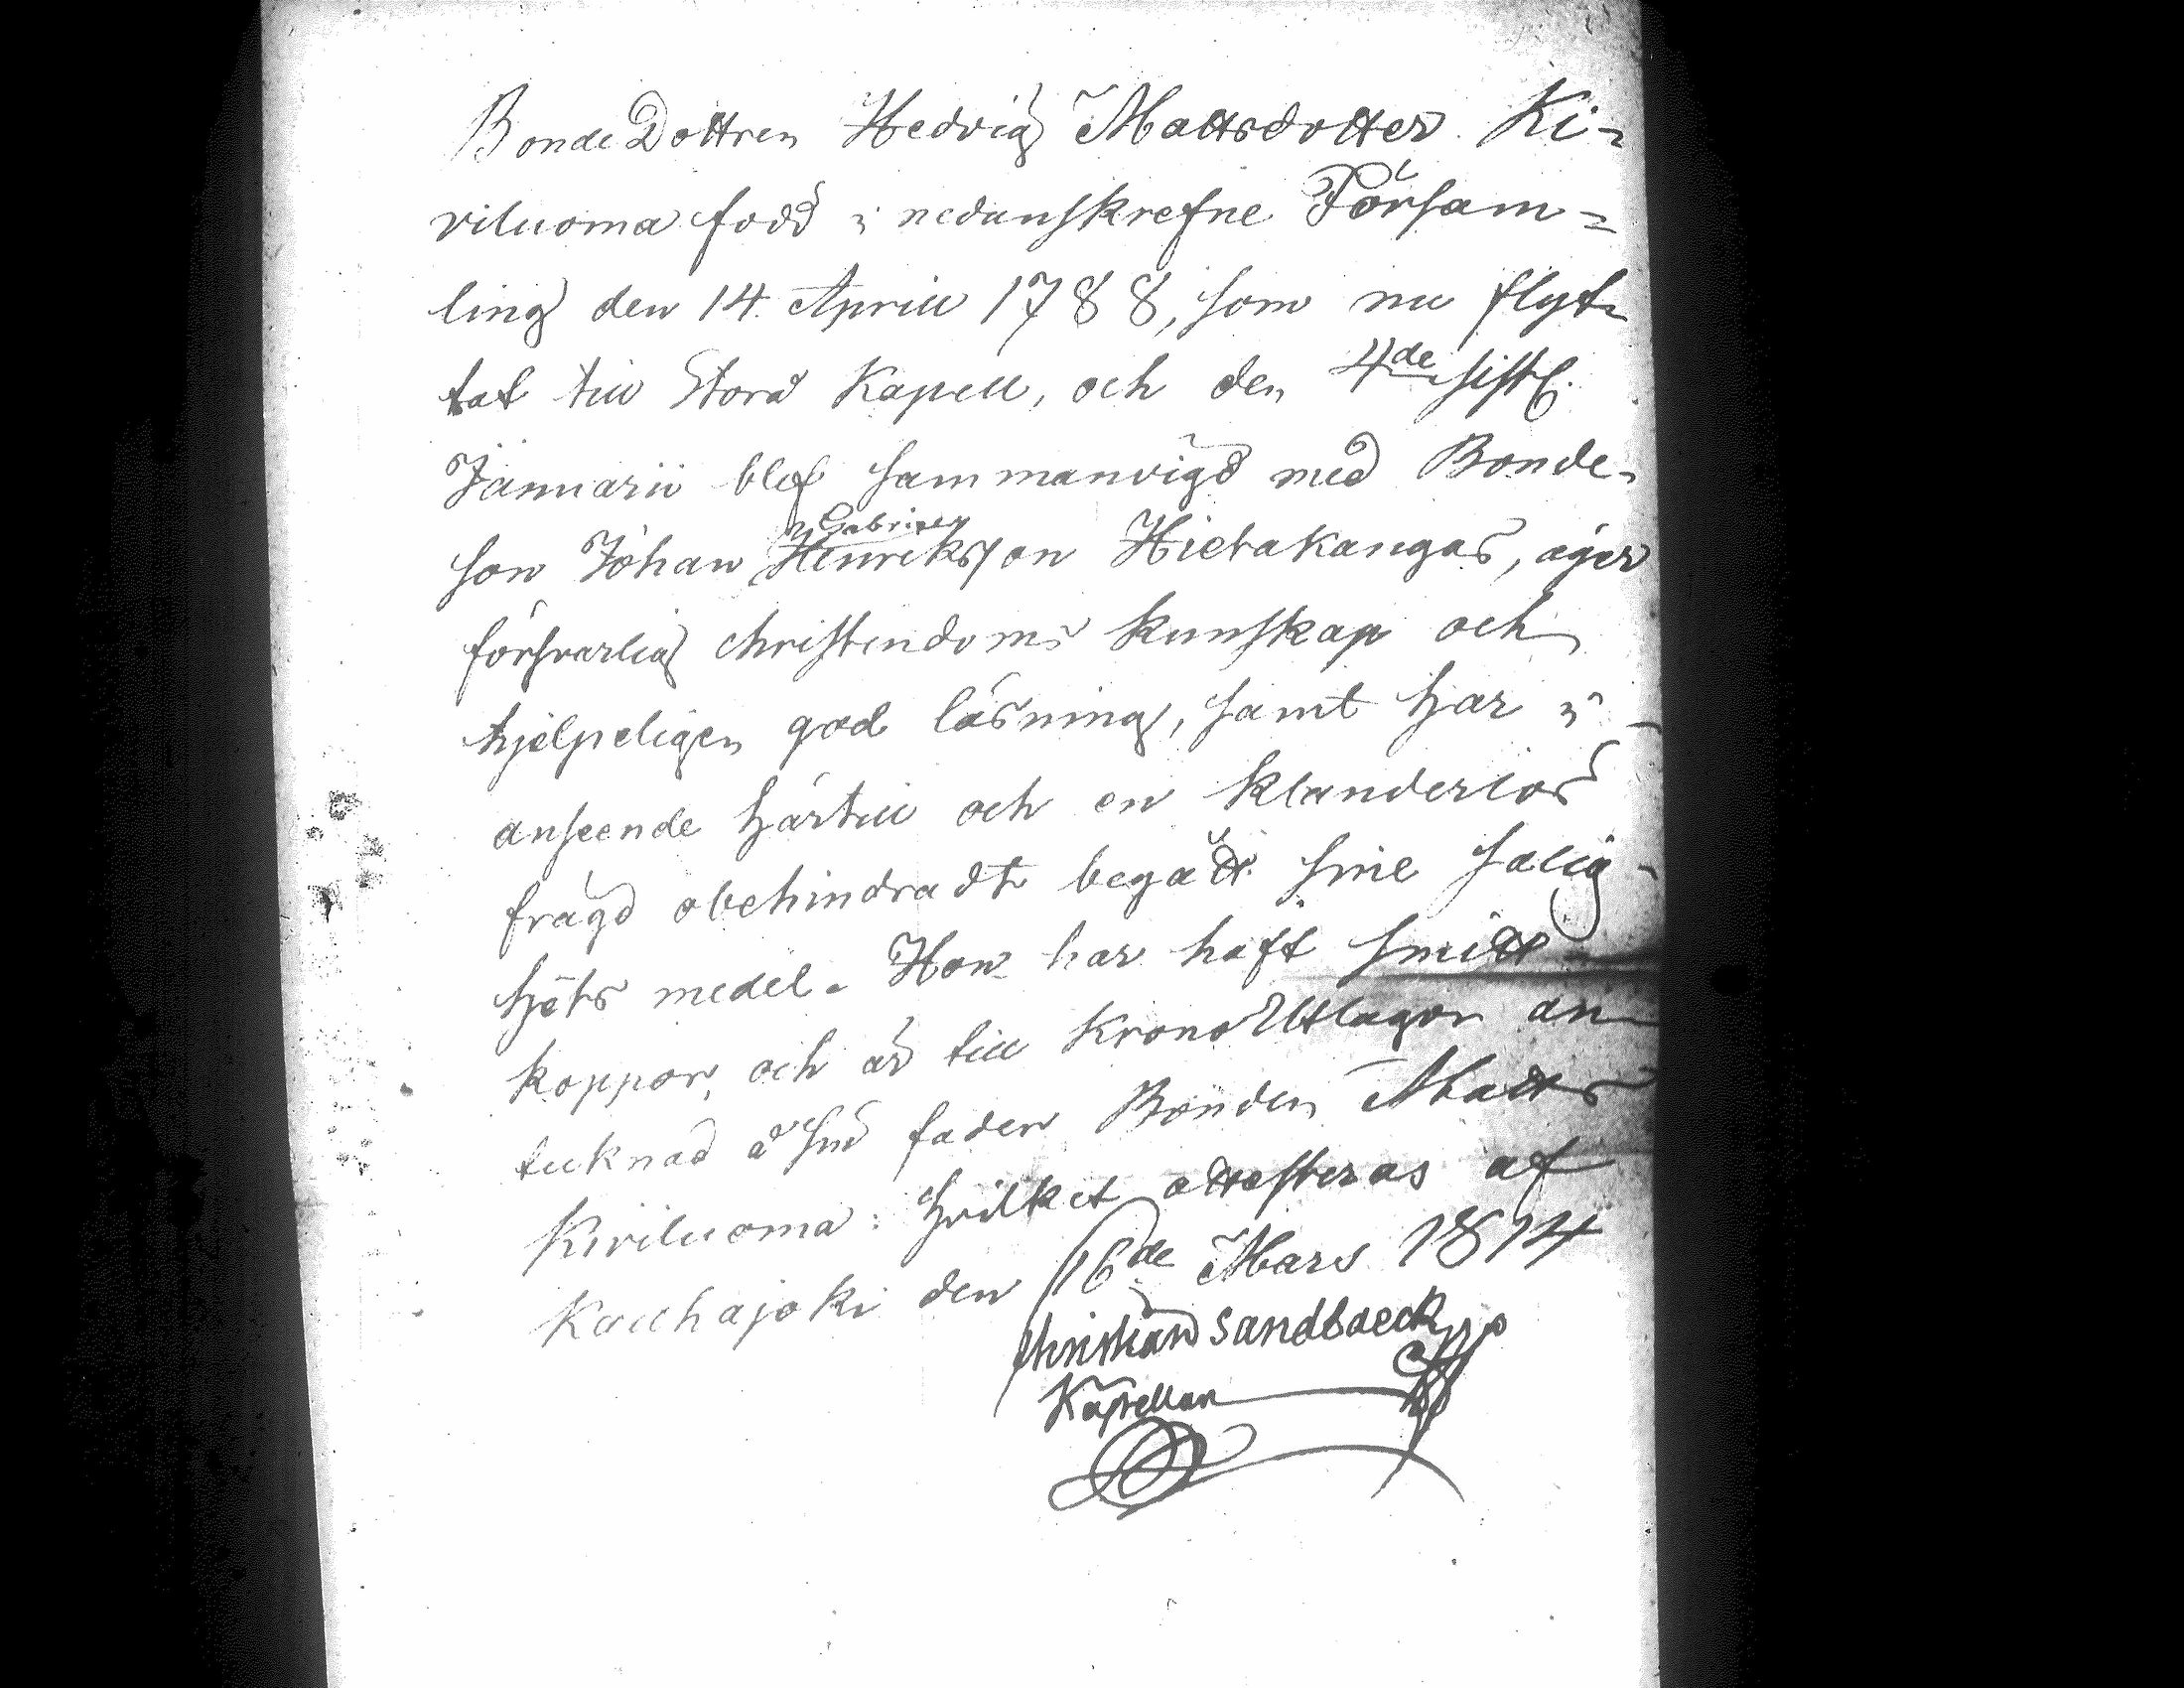 Bonde Dottren Hedvig Mattsdotter Ki-
viluoma född i nedanskrefne Försame=
ling den 14 Aprill 1788, som nu flyt-
tat till Storå Kapell, och den 4de sistl.
Januarii blef sammanvigd med Bonde-
son Johan Henriksson Gabriels Hietakangas, äger
försvarlig christendoms kunskap och
hjelpeligen god läsning, samt har i
anseende härtill och en klanderlös
frägd obehindradt begått sine salig-
hets medel. Hon har haft smitt-
koppor, och är till Krono Utlagor an-
tecknad å sin fader Bonden Matts
Kiviluoma: hvilket attesteras af
Kauhajoki den 16de Mars 1814
Christian Sandbaeck
Kapellan